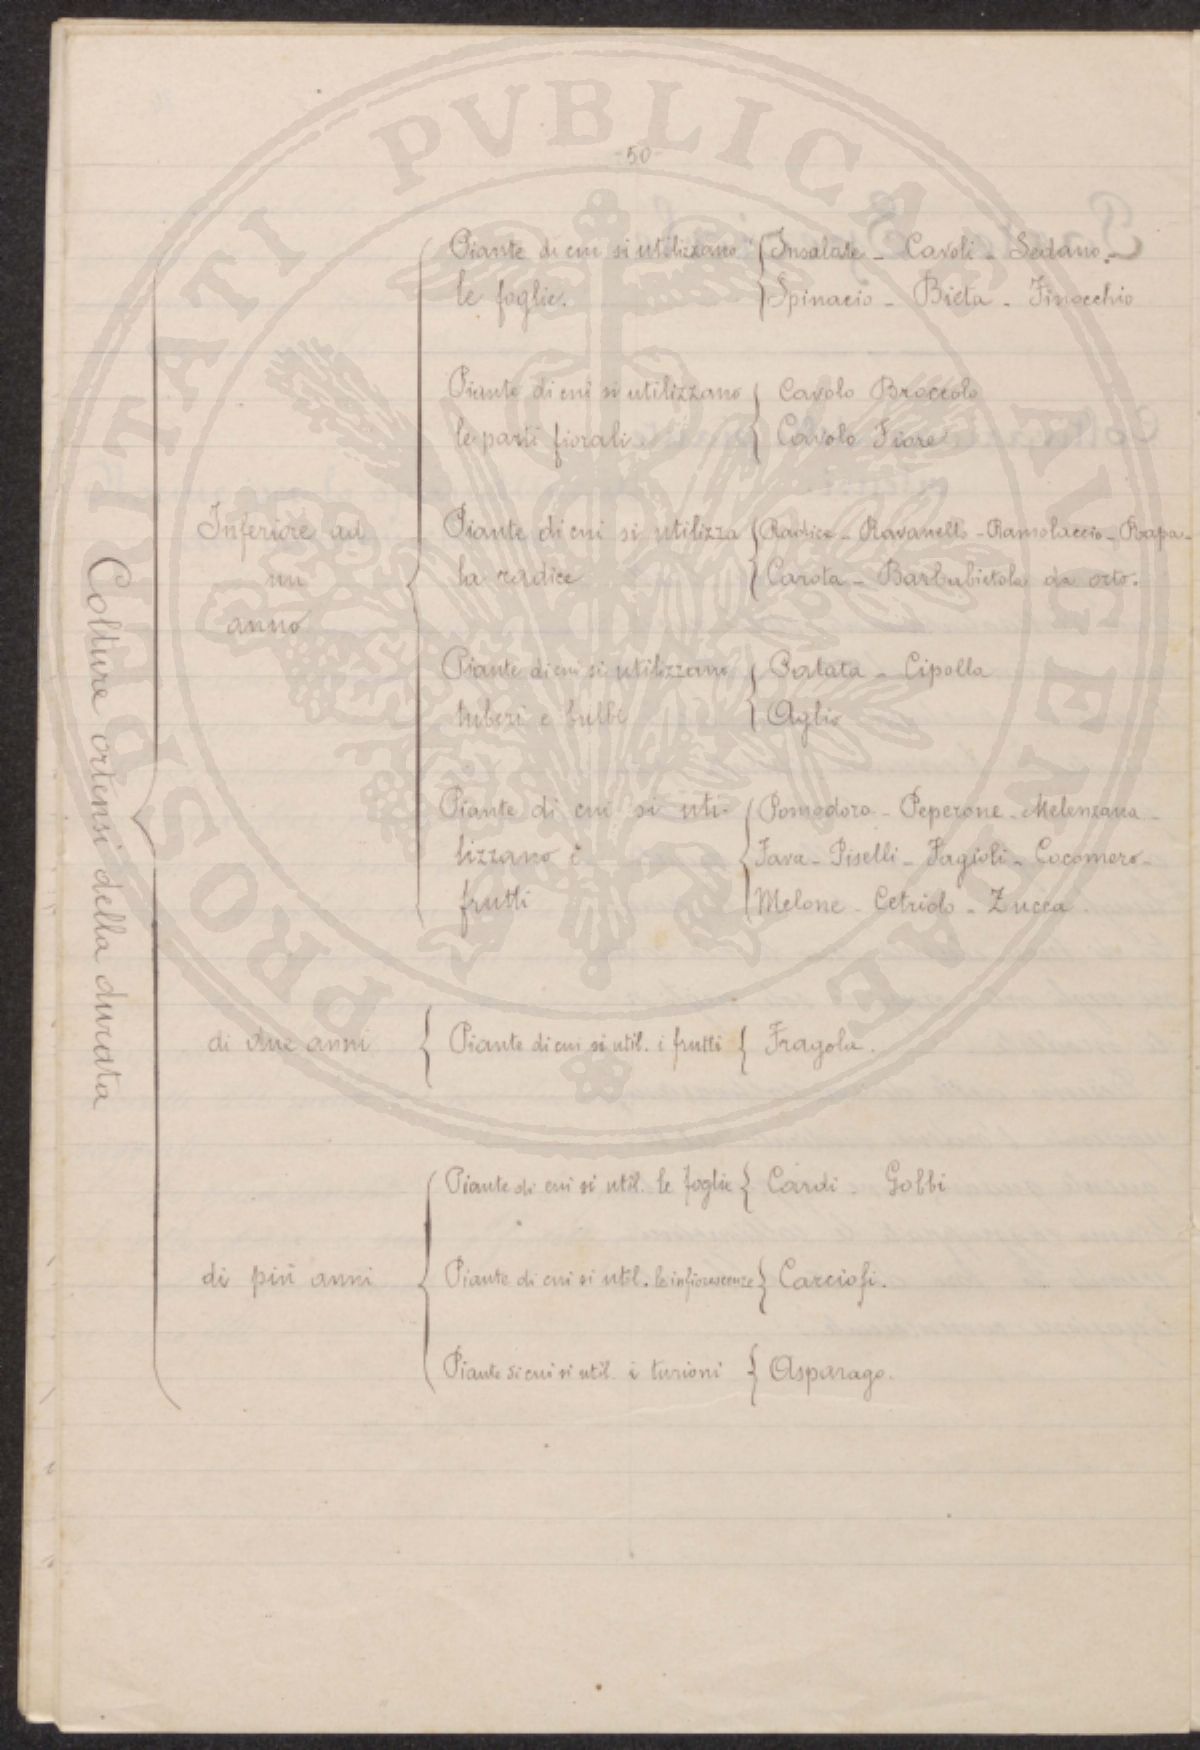 -50-
Colture ortensi della durata
Inferiore ad
un
anno
Piante di cui si utilizzano
le foglie.
Insalate - Cavoli - Sedano -
Spinacio - Bieta - Finocchio
Piante di cui si utilizzano
le parti fiorali
Cavolo Broccolo
Cavolo Fiore
Piante di cui si utilizza
la radice
Radice - Ravanello - Ramolaccio - Rapa -
Carota - Barbabietola da orto.
Piante di cui si utilizzano
tuberi e bulbi
Patata - Cipolla
Aglio
Piante di cui si uti-
lizzano i
frutti
Pomodoro - Peperone - Melenzana -
Fava - Piselli - Fagioli - Cocomero -
Melone - Cetriolo - Zucca.
di due anni
Piante di cui si util. i frutti
Fragola.
di più anni
Piante di cui si util. le foglie
Cardi - Gobbi
Piante di cui si util. le infiorescenze
Carciofi.
Piante di cui si util. i turioni
Asparago.
PROSPERITATI PVBLICAE AVGENDAE